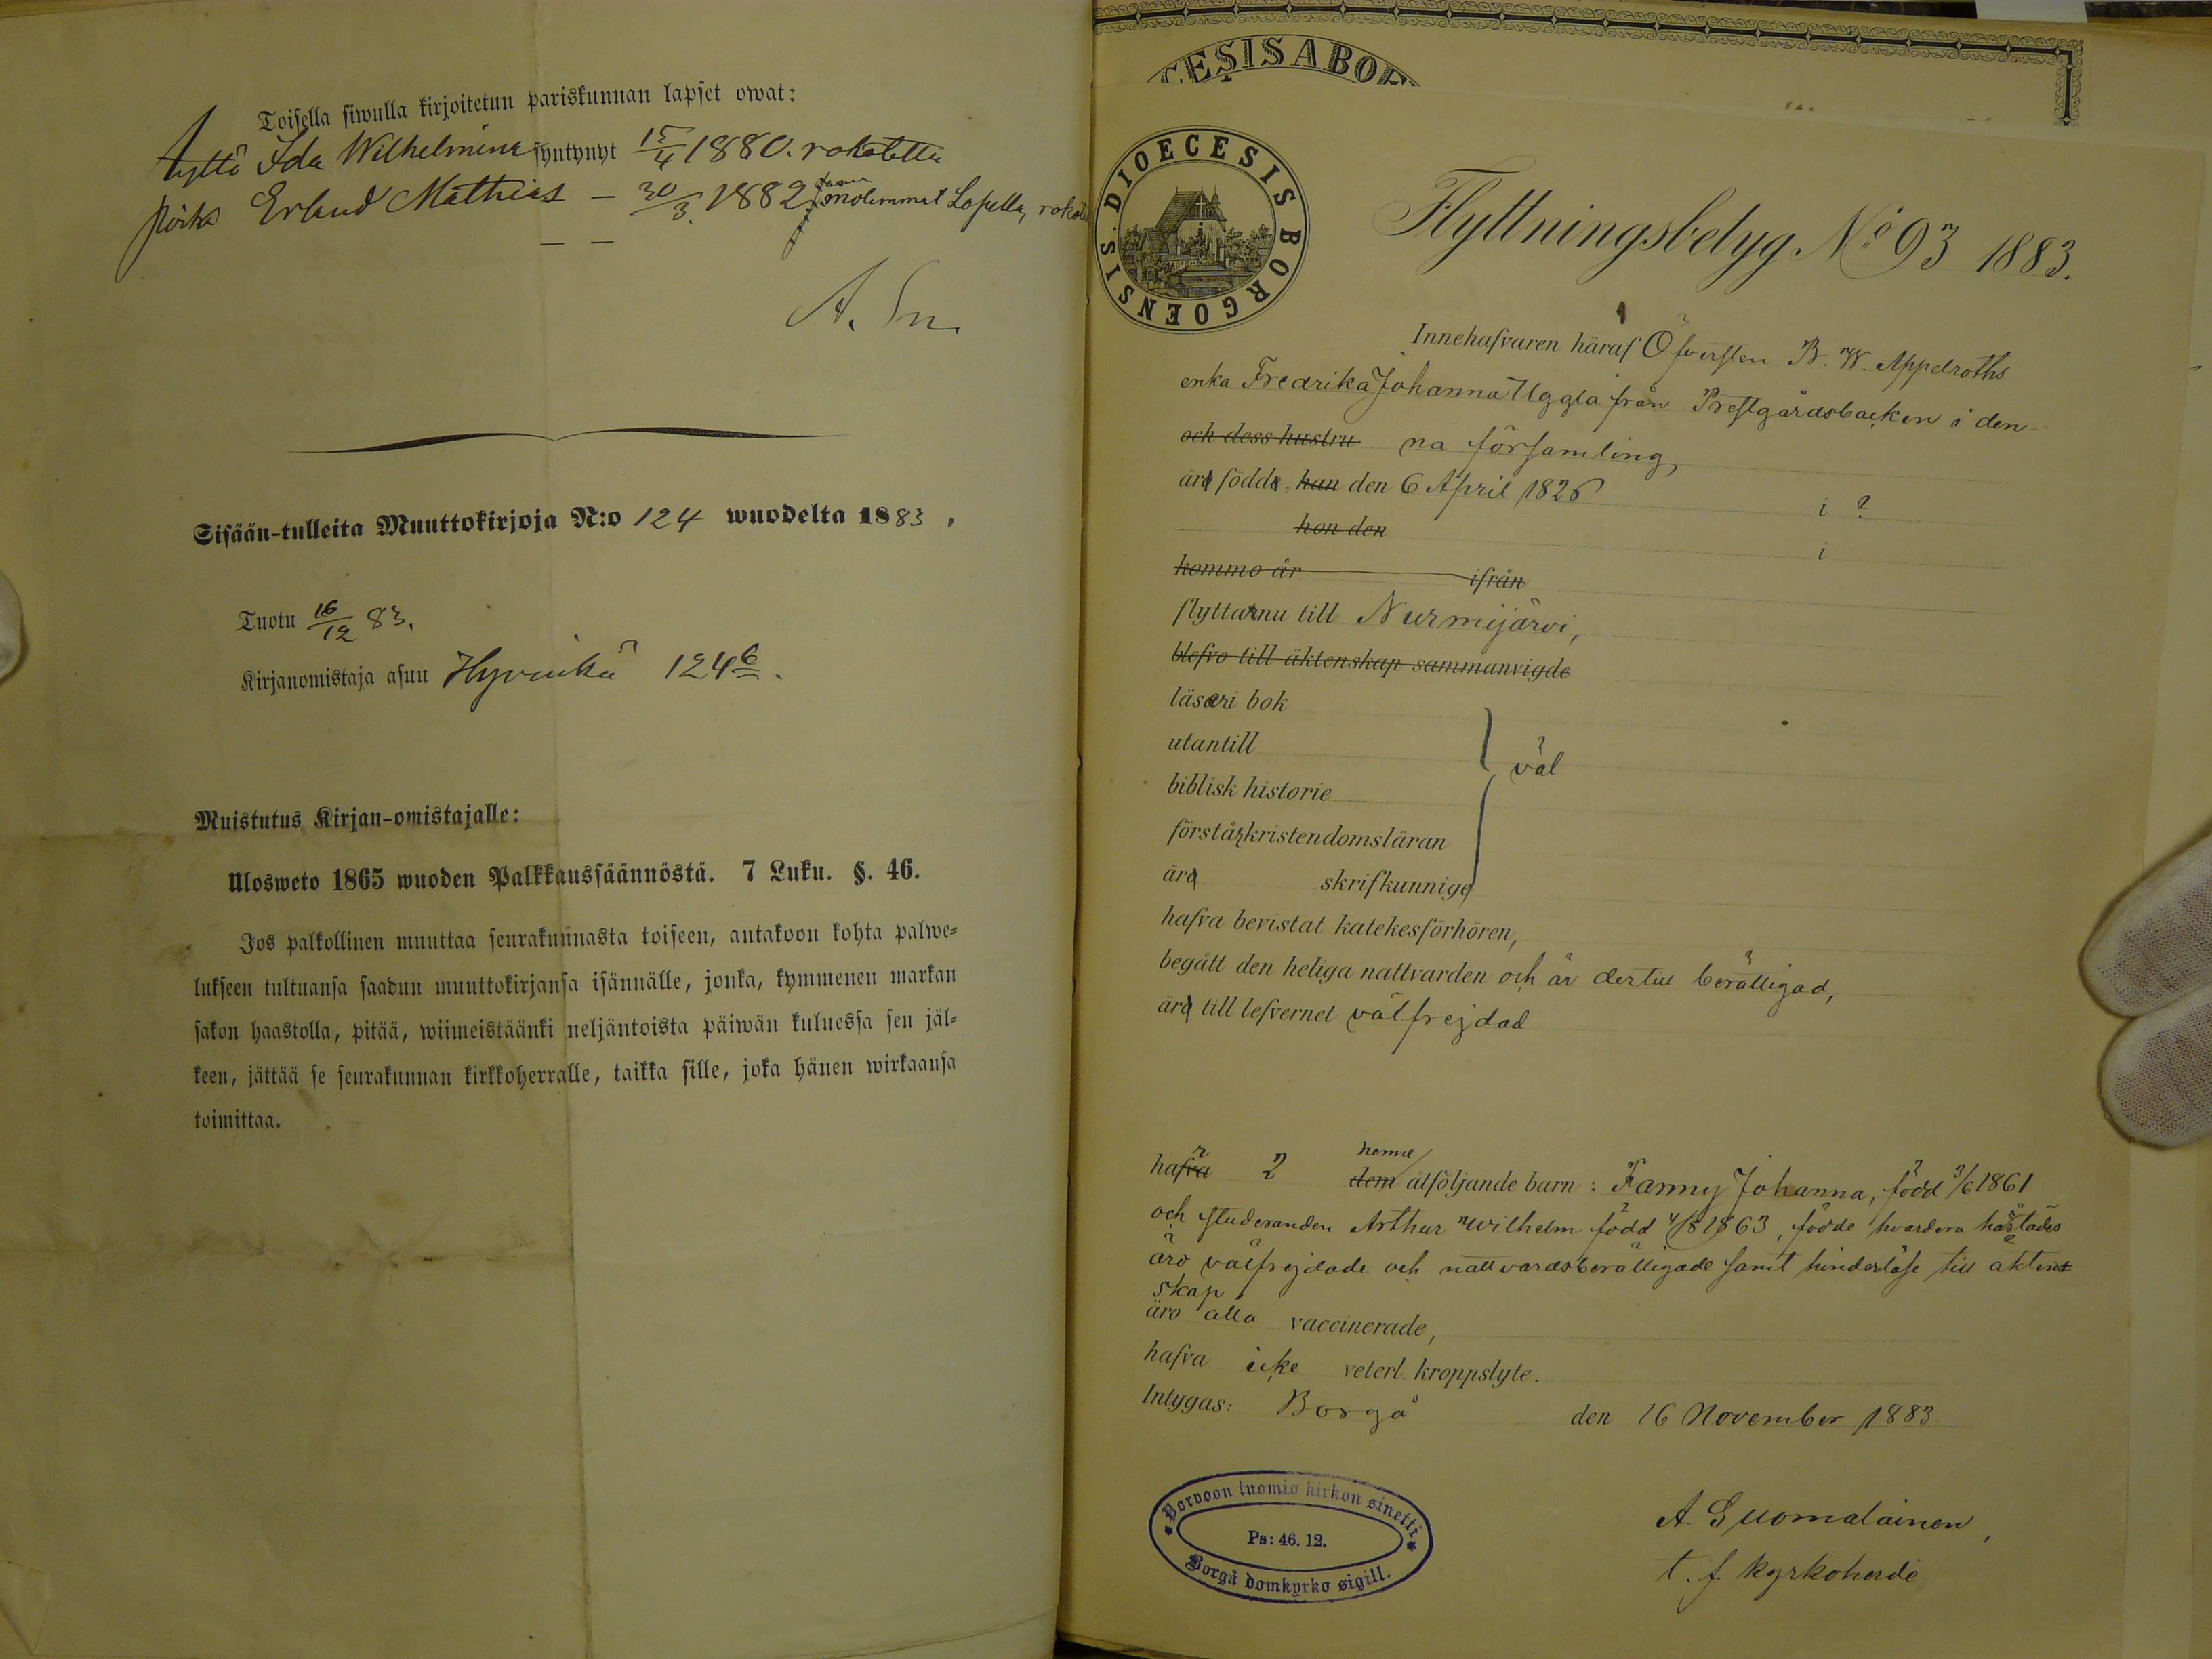 Toisella siwulla kirjoitetun pariskunnan lapset owat:
tyttö Ida Wilhelmina syntynyt 15/4 1880. rokotettu
poika Erland Mathias — 30/3. 1882 molemmat Lopella,
— —
A. Sn.
Sisään-tulleita Muuttokirjoja N:o 124 wuodelta 1883,
Tuotu 16/12 83.
Kirjanomistaja asuu Hyvinkä 124
Muistutus Kirjan-omistajalle:
Ulosweto 1865 wuoden Palkkaussäännöstä. 7 Luku. §. 46.
Jos palkollinen muuttaa seurakunnasta toiseen, antakoon kohta palwe-
lukseen tultuansa saadun muuttokirjansa isännälle, jonka, kymmenen markan
sakon haastolla, pitää, wiimeistäänki neljäntoista päiwän kuluessa sen jäl-
keen, jättää se seurakunnan kirkkoherralle, taikka sille, joka hänen wirkaansa
toimittaa.
CESIS ABOE
DIOECESIS BORGOENSIS.
Flyttningsbetyg No 93 1883.
Innehafvaren häraf Öfversten B. W. Appelroths
enka Fredrika Johanna Uggla från Prestgårdsbacken i den-
och dess hustru na församling
äro födda, han den 6 April 1826 i ?
hon den i
kommo år ifrån
flytta nu till Nurmijärvi,
blefvo till äktenskap sammanvigde
läsa i bok
utantill
väl
biblisk historie
förstå kristendomsläran
äro skrifkunnige
hafva bevistat katekesförhören,
begått den heliga nattvarden och är dertill berättigad,
äro till lefvernet välfrejdad
hafva 2 dem henne åtföljande barn: Fanny Johanna, född 3/6 1861
och studeranden Arthur Wilhelm född 4/8 1863, födde hvardera härstädes
äro välfrejdade och nattvardsberättigade samt hinderlöse till äkten-
skap
äro alla vaccinerade,
hafva icke veterl. kroppslyte.
Intygas: Borgå den 16 November 1883
Porvoon tuomio kirkon sinetti
Ps: 46. 12.
Borgå domkyrko sigill.
A Suomalainen,
t. f. kyrkoherde